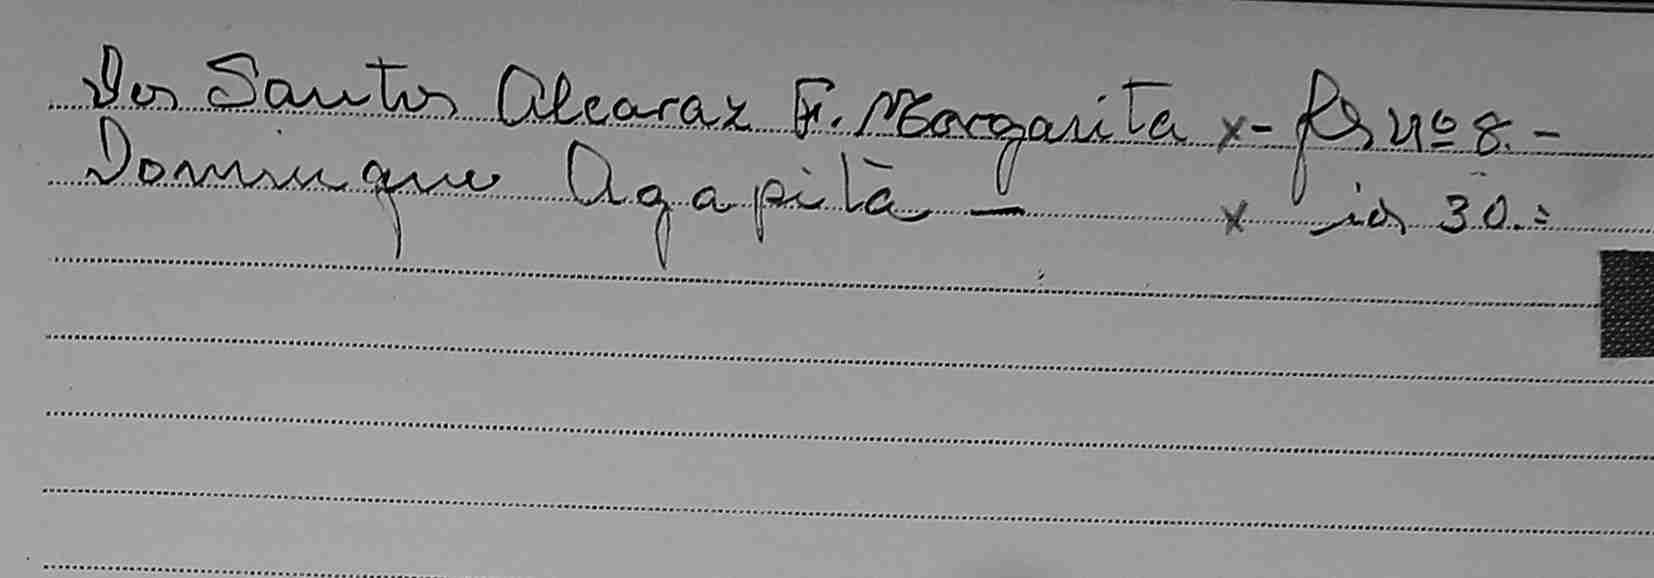 Dos Santos Alcaraz F. Margarita x- fs nº 8.-
Domingue Agapita - x 30.=